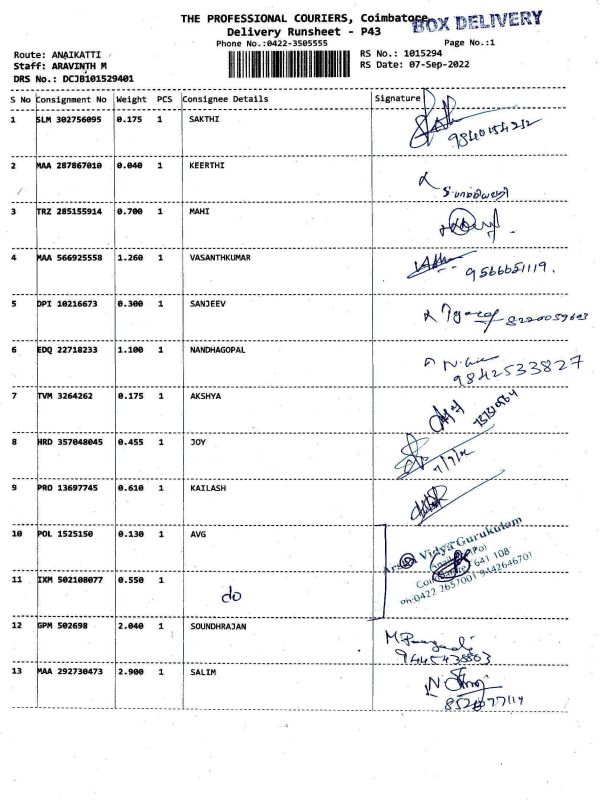 THE PROFESSIONAL COURIERS, Coimbatore
BOX DELIVERY
Delivery Runsheet - P43
Phone No.:0422-3505555
Page No.:1
Route: ANAIKATTI
RS No.: 1015294
Staff: ARAVINTH M
RS Date: 07-Sep-2022
DRS No.: DCJB101529401
S No Consignment No Weight PCS Consignee Details Signature
1 SLM 302756095 0.175 1 SAKTHI
2 MAA 287867010 0.040 1 KEERTHI
3 TRZ 285155914 0.700 1 MAHI
4 MAA 566925558 1.260 1 VASANTHKUMAR
9566651119.
5 DPI 10216673 0.300 1 SANJEEV
6 EDQ 22718233 1.100 1 NANDHAGOPAL
9842533827
7 TVM 3264262 0.175 1 AKSHYA
8 HRD 357048045 0.455 1 JOY
9 PRO 13697745 0.610 1 KAILASH
10 POL 1525150 0.130 1 AVG
Vidya Gurukulam
641 108
Ph:0422 2657001 9442646701
11 IXM 502108077 0.550 1
do
12 GPM 502698 2.040 1 SOUNDHRAJAN
13 MAA 292730473 2.900 1 SALIM